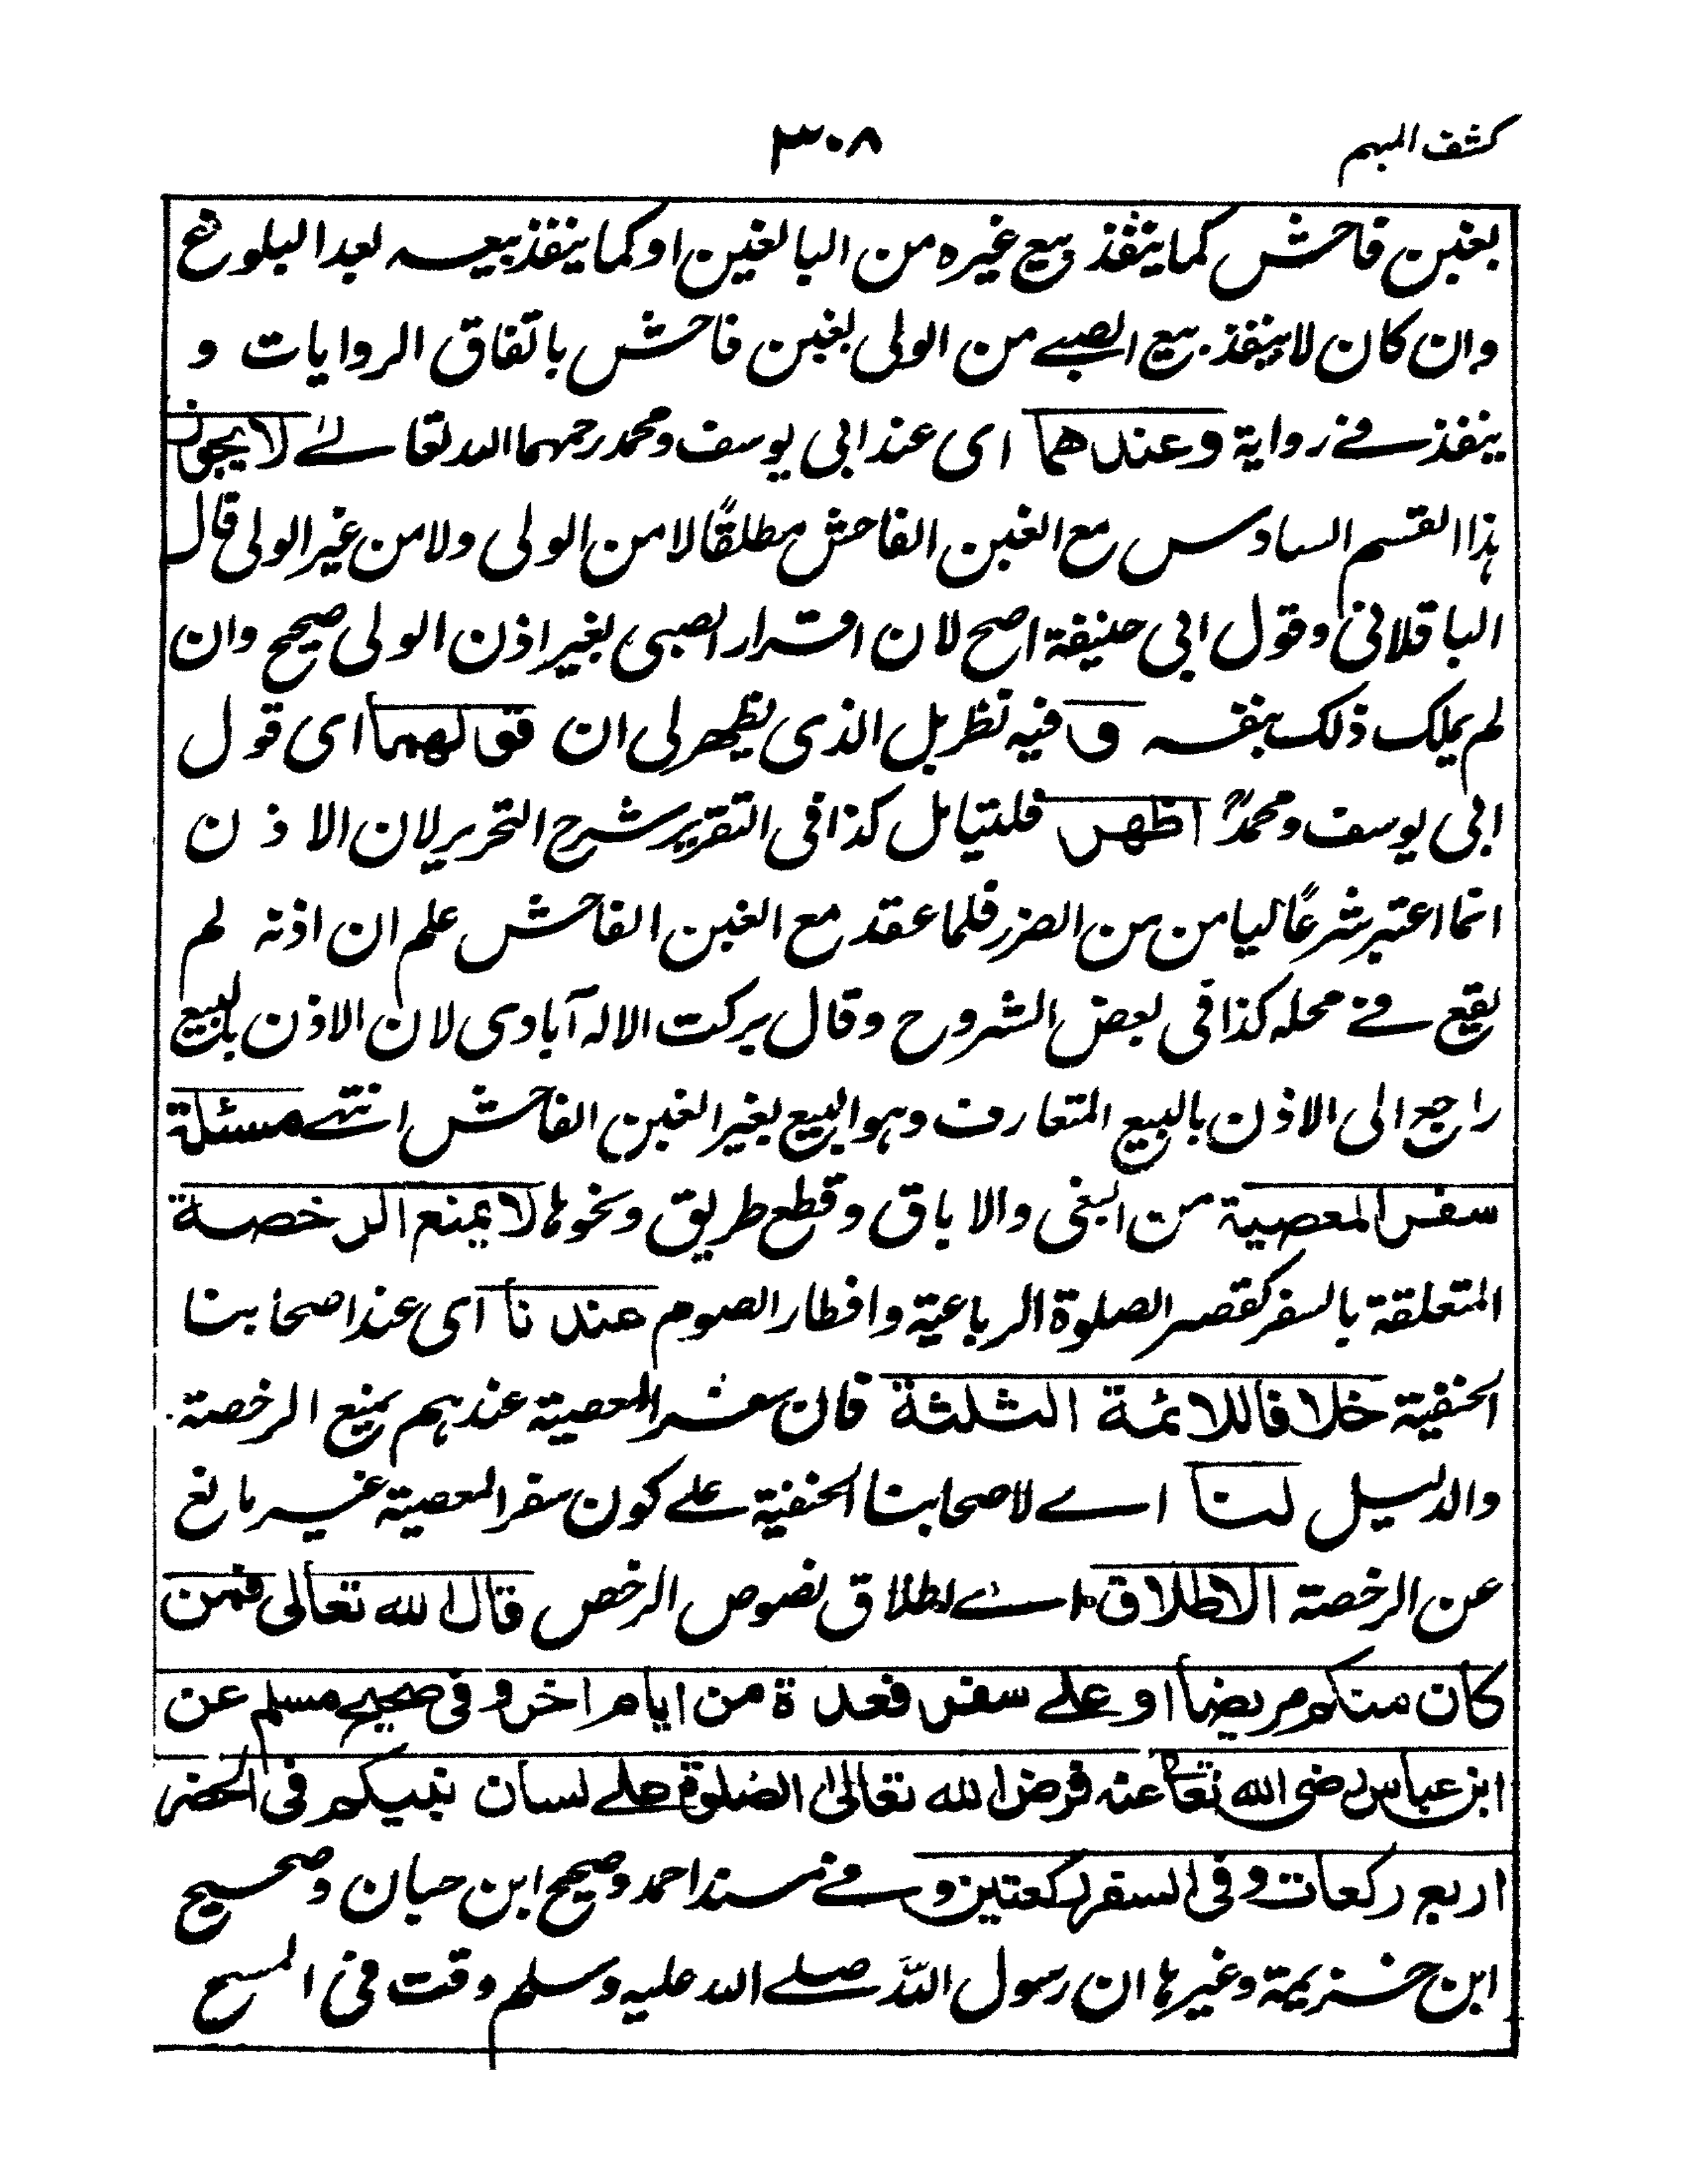 كشف المبهم
٣٠٨
بغبن فاحش كما ينفذ بيع غيره من البالغين او كما ينفذ بيعه بعد البلوغ
وان كان لا ينفذ بيع الصبى من الولى بغبن فاحش باتفاق الروايات و
ينفذ فى رواية وعندهما اى عند ابى يوسف ومحمد رحمهما الله تعالى لا يجوز
هذا القسم السادس مع الغبن الفاحش مطلقًا لا من الولى ولا من غير الولى قال
الباقلانى وقول ابى حنيفة اصح لان اقرار الصبى بغير اذن الولى صحيح وان
لم يملك ذلك بنفسه و فيه نظر بل الذى يظهر لى ان قولهما اى قول
ابى يوسف ومحمدؒ اظهر فليتامل كذا فى التقرير شرح التحرير لان الاذن
انما اعتبر شرعًا ليامن من الضرر فلما عقد مع الغبن الفاحش علم ان اذنه لم
يقع فى محله كذا فى بعض الشروح وقال بركت الاله آبادى لان الاذن بالبيع
راجع الى الاذن بالبيع المتعارف وهو البيع بغير الغبن الفاحش انتهى مسئلة
سفر المعصية من البغى والاباق وقطع طريق ونحوها لا يمنع الرخصة
المتعلقة بالسفر كقصر الصلوة الرباعية وافطار الصوم عندنا اى عند اصحابنا
الحنفية خلافا للائمة الثلثة فان سفر المعصية عندهم يمنع الرخصة
والدليل لنا اى لاصحابنا الحنفية على كون سفر المعصية غير مانع
عن الرخصة الاطلاق اى اطلاق نصوص الرخص قال الله تعالى فمن
كان منكم مريضا او على سفر فعدة من ايام اخر و فى صحيح مسلم عن
ابن عباس رضى الله تعالى عنه فرض الله تعالى الصلوة على لسان نبيكم فى الحضر
اربع ركعات و فى السفر ركعتين و فى مسند احمد وصحيح ابن حبان وصحيح
ابن خزيمة وغيرها ان رسول الله صلى الله عليه وسلم وقت فى المسح